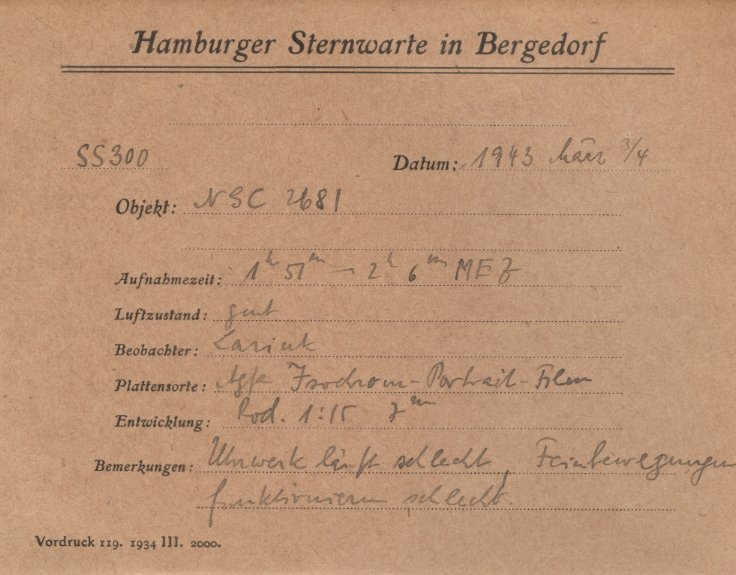 Hamburger Sternwarte in Bergedorf
SS300 Datum: 1943 März 3/4
Objekt: NGC 2681
Aufnahmezeit: 1h 51m – 2h 6m MEZ
Luftzustand: gut
Beobachter: Larink
Plattensorte: Agfa Isochrom-Portrait-Film
Entwicklung: Rod. 1:15 7m
Bemerkungen: Uhrwerk läuft schlecht, Feinbewegungen
funktionieren schlecht.
Vordruck 119. 1934 III. 2000.